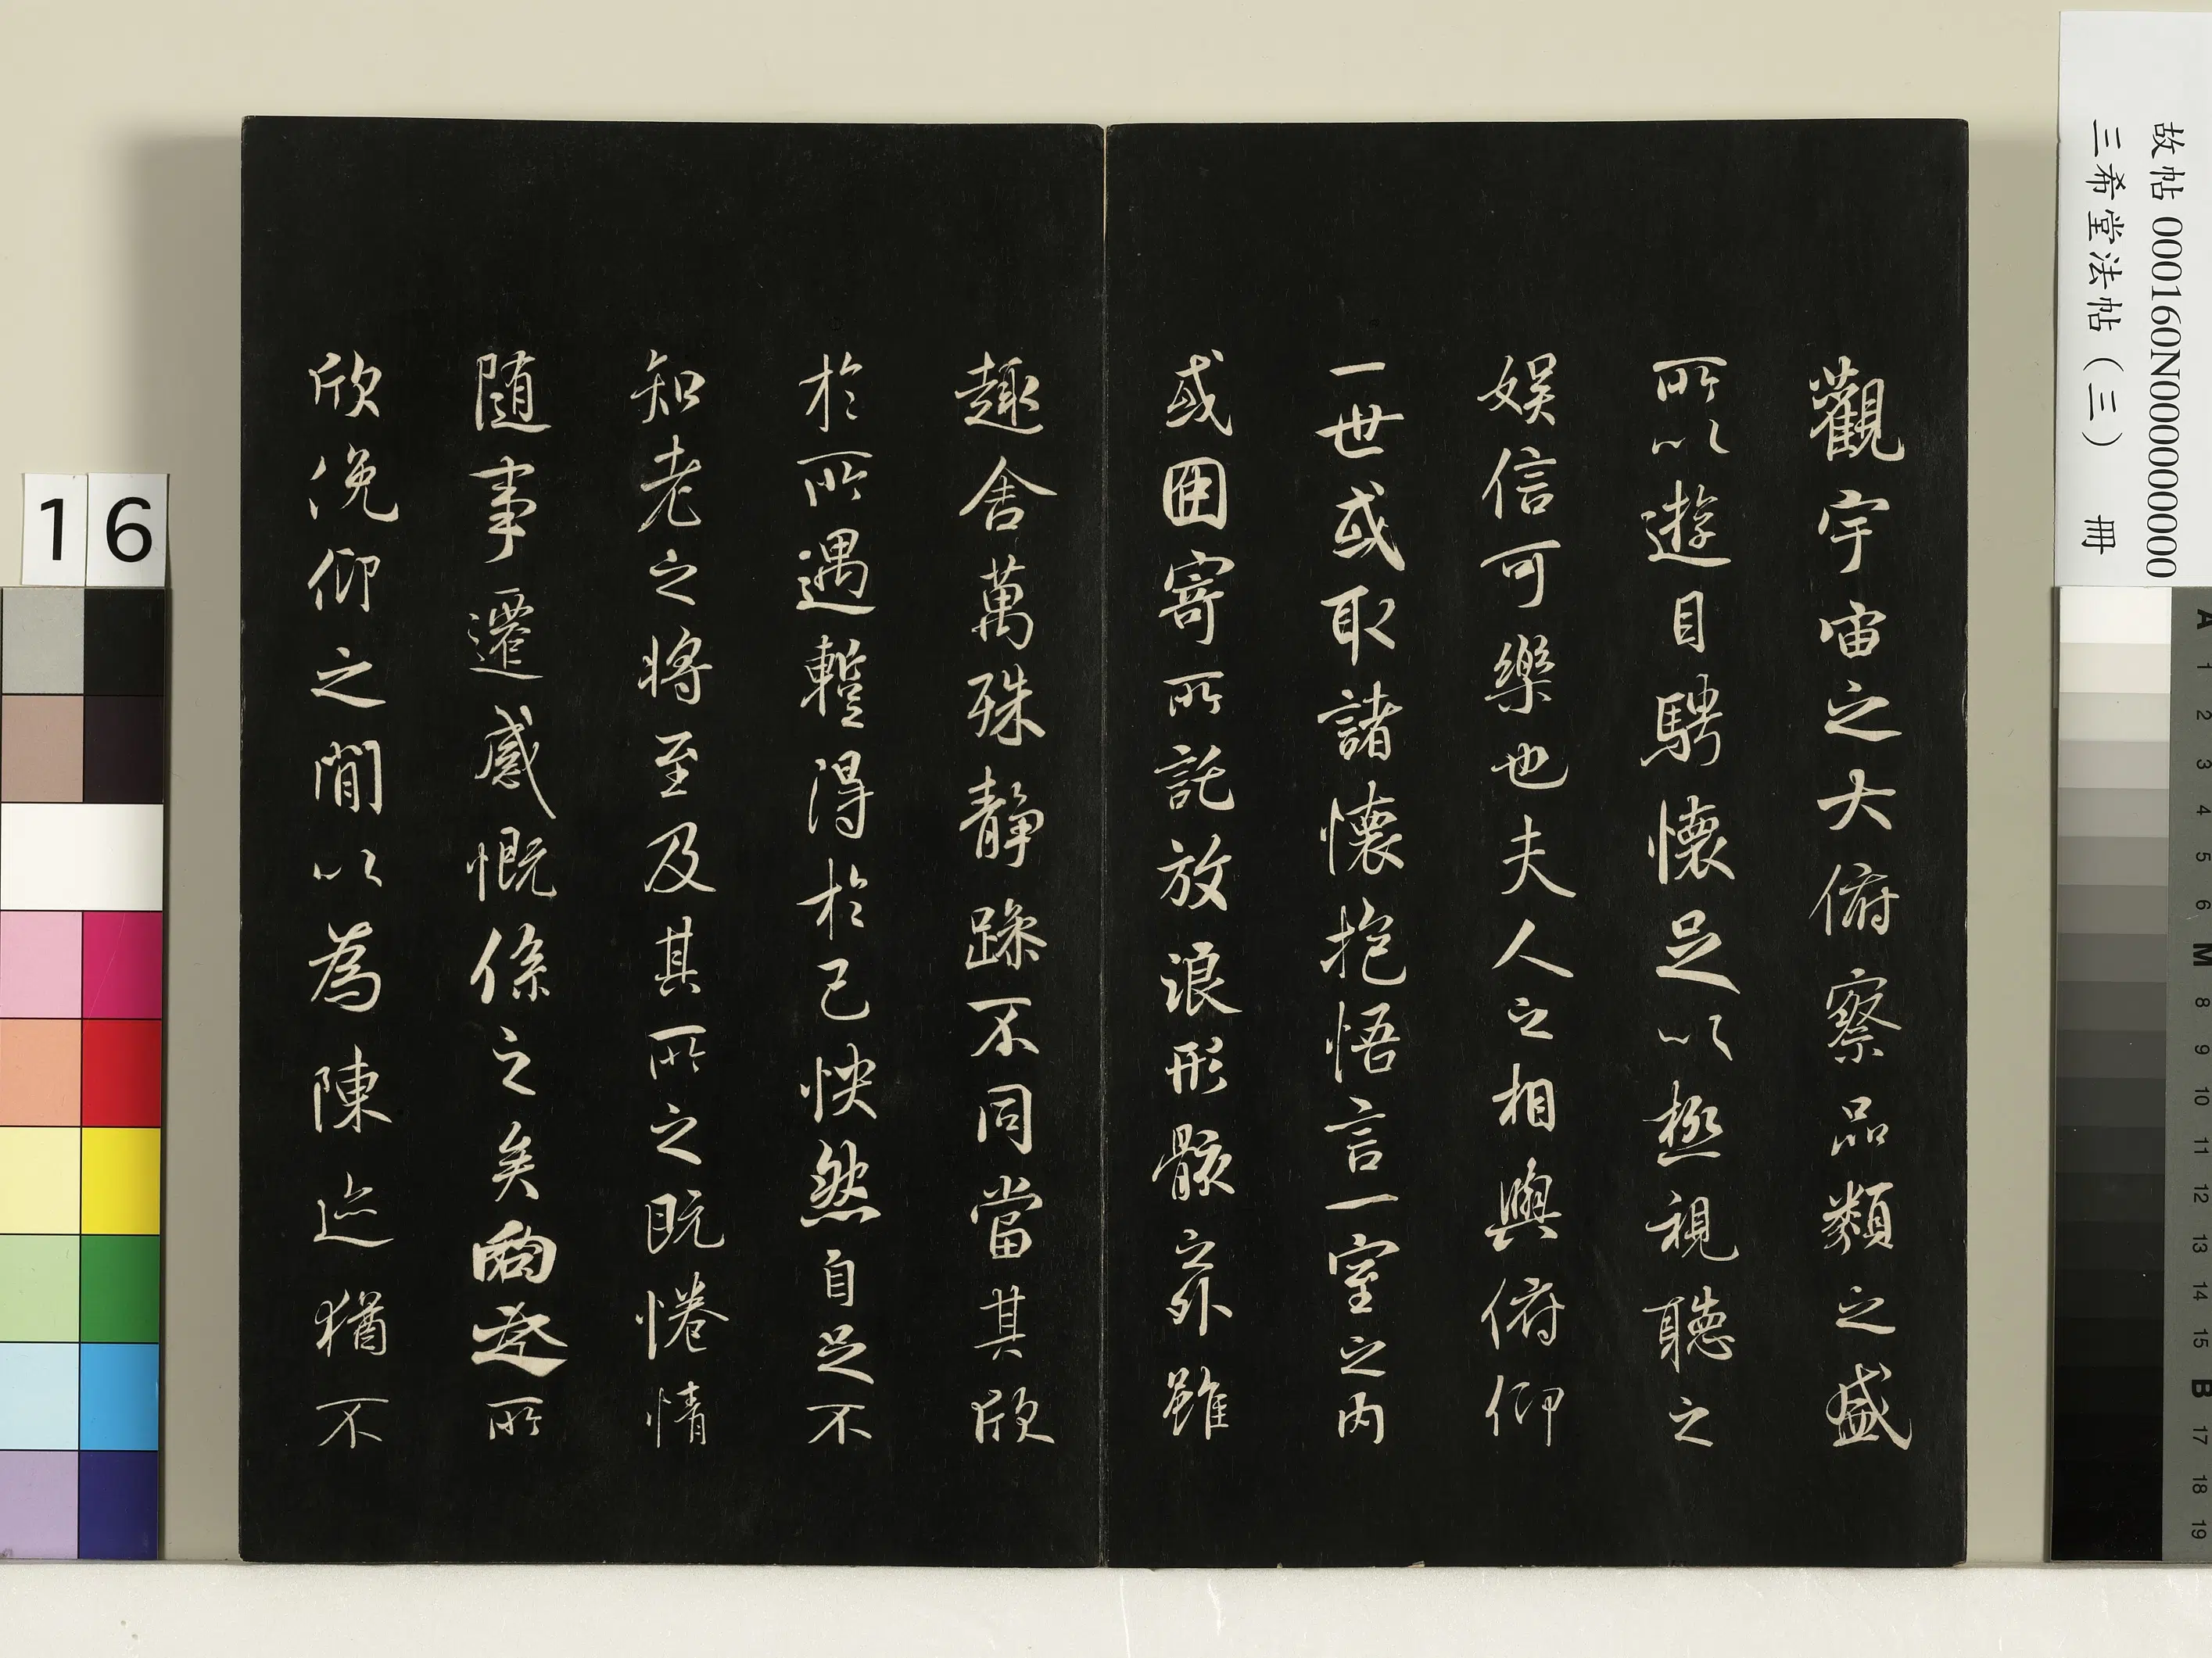 觀宇宙之大俯察品類之盛
所以遊目騁懷足以極視聽之
娛信可樂也夫人之相與俯仰
一世或取諸懷抱悟言一室之內
或因寄所託放浪形骸之外雖
趣舍萬殊靜躁不同當其欣
於所遇暫得於己怏然自足不
知老之將至及其所之既惓情
隨事遷感慨係之矣向之所
欣俛仰之閒以為陳迹猶不
故帖 000160N000000000
三希堂法帖（三） 冊
16
A 1 2 3 4 5 6 M 8 9 10 11 12 13 14 15 B 17 18 19